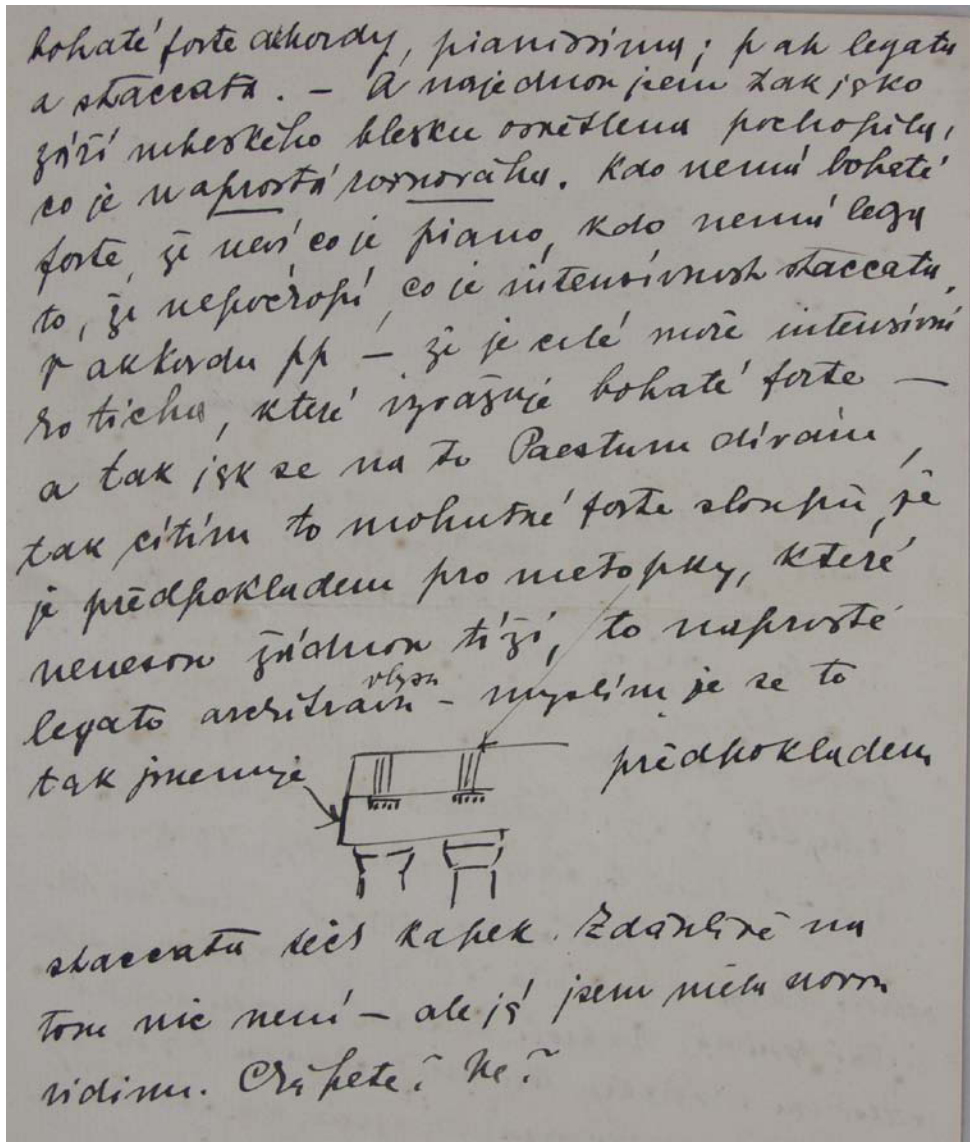 bohaté forte akordy, pianissima; pak legata
a staccata. – A najednou jsem tak jako
září nebeského blesku osvětlena pochopila,
co je naprostá rovnováha. Kdo nemá bohaté
forte, že neví co je piano, kdo nemá lega
to, že nepochopí, co je intensivnost staccata,
v akkordu pp – že je celé moře intensivní
ho ticha, které vyvažuje bohaté forte –
a tak jak se na to Paestum dívám,
tak cítím to mohutné forte sloupů, je
je předpokladem pro metopky, které
nenesou žádnou tíži, to naprosté
legato architrávu – myslím že se to
vlysu
tak jmenuje předpokladem
staccata šesti kapek. Zdánlivě na
tom nic není – ale já jsem měla novou
vidinu. Chápete? Ne?